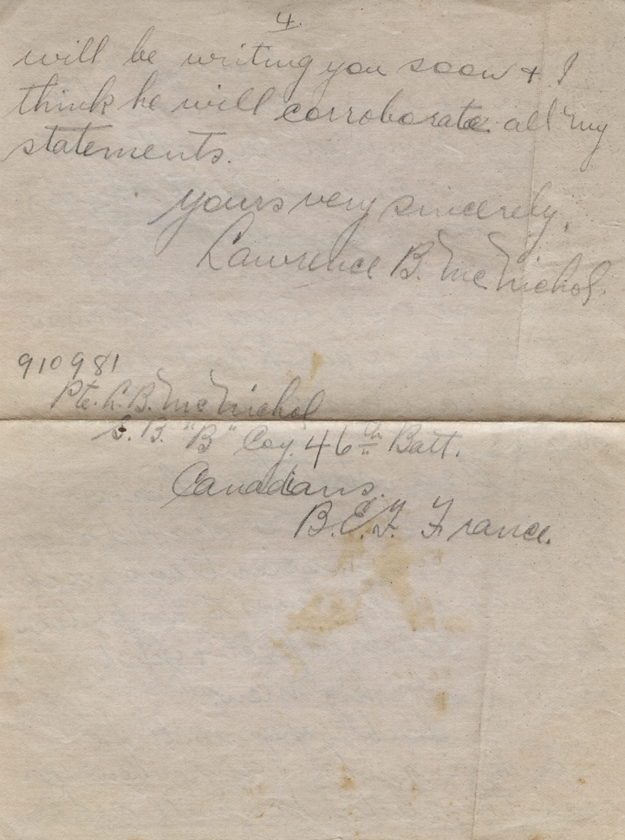 4.
will be writing you soon + I
think he will corroborate all my
statements.
Yours very sincerely,
Lawrence B. McNichol.
910981
Pte. L. B. McNichol
S. B. "B" Coy. 46th Batt.
Canadians.
B.E.F. France.